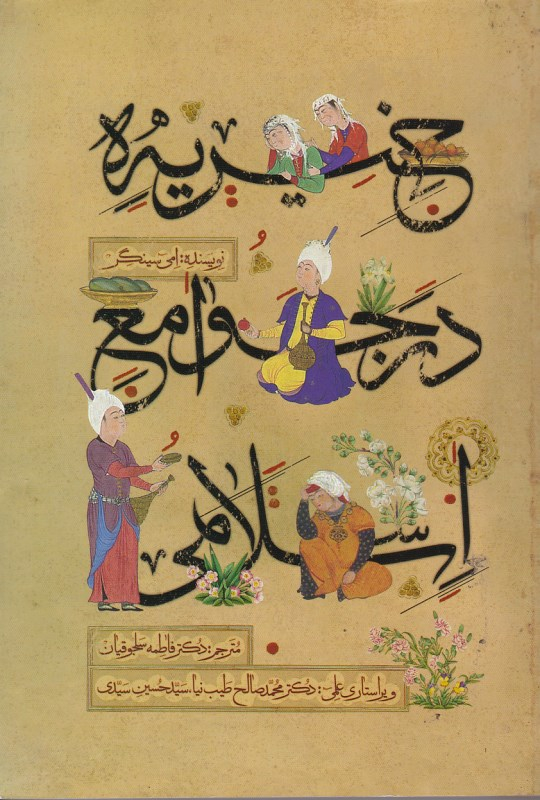 جنیریه
نویسنده: امی سینگر
در جوامع
اسلامی
مترجم: دکتر فاطمه سلجوقیان
ویراستاری علمی: دکتر محمدصالح طیب نیا، سید حسین سیدی